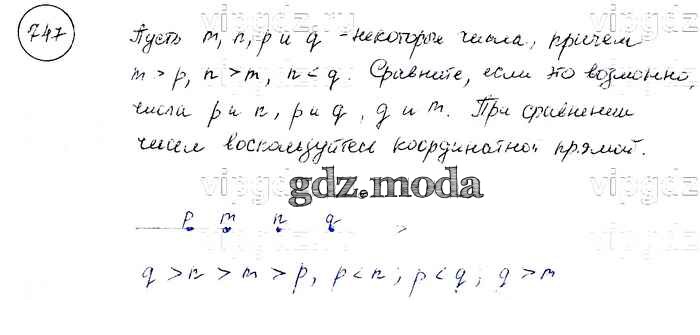 747
Пусть m, n, p и q - некоторые числа, причем
m > p, n > m, n < q. Сравните, если это возможно,
числа p и n, p и q, q и m. При сравнении
чисел воспользуйтесь координатной прямой.
gdz.moda
p m n q
q > n > m > p, p < n; p < q; q > m
vipgdz
vipgdz
vipgdz
vipgdz